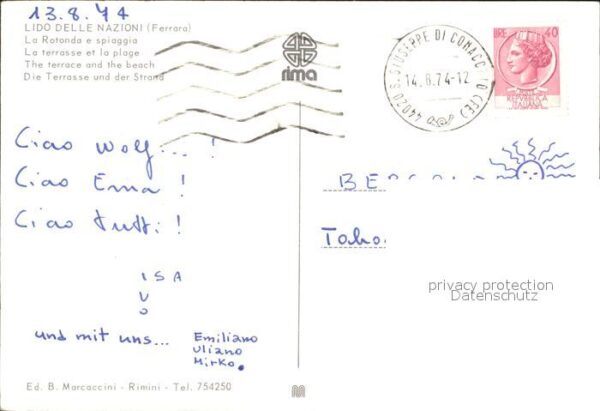 13.8.74
LIDO DELLE NAZIONI (Ferrara)
La Rotonda e spiaggia
La terrasse et la plage
The terrace and the beach
Die Terrasse und der Strand
rima
44020 S. GIUSEPPE DI COMACCHIO (FE)
14.8.74-12
LIRE 40
REPVBBLICA
ITALIANA
Ciao Wolf...!
Ciao Erna!
Ciao tutti!
ISA
IVO
und mit uns...
Emiliano
Uliano
Mirko.
privacy protection
Datenschutz
Ed. B. Marcaccini - Rimini - Tel. 754250